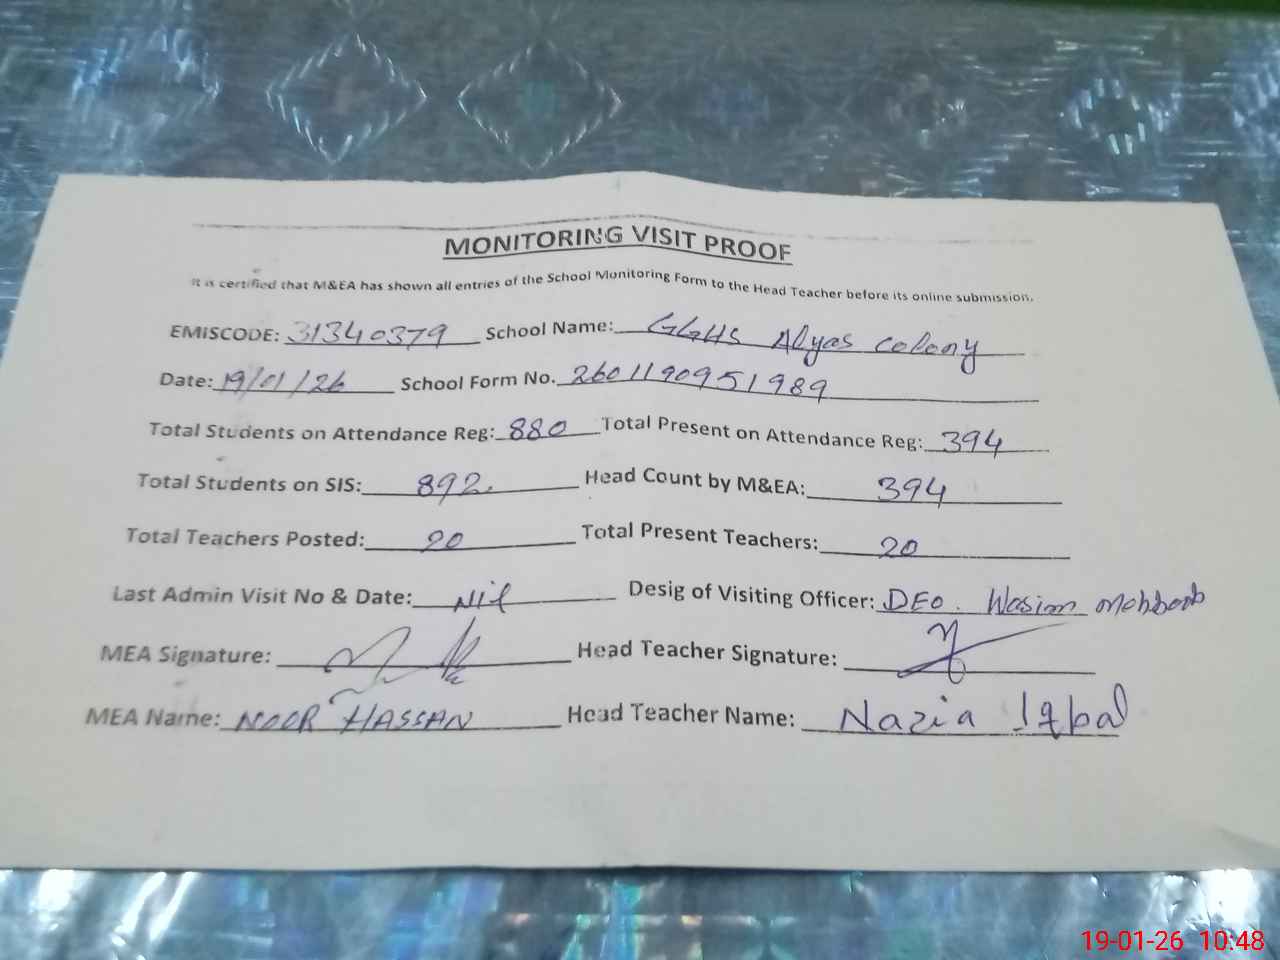 MONITORING VISIT PROOF
It is certified that M&EA has shown all entries of the School Monitoring Form to the Head Teacher before its online submission.
EMISCODE: 31340379 School Name: GGHS Alyas colony
Date: 19/01/26 School Form No. 2601190951989
Total Students on Attendance Reg: 880 Total Present on Attendance Reg: 394
Total Students on SIS: 892. Head Count by M&EA: 394
Total Teachers Posted: 20 Total Present Teachers: 20
Last Admin Visit No & Date: Nil Desig of Visiting Officer: DEO. Wasim mehboob
MEA Signature: Head Teacher Signature:
MEA Name: NOOR HASSAN Head Teacher Name: Nazia Iqbal
19-01-26 10:48